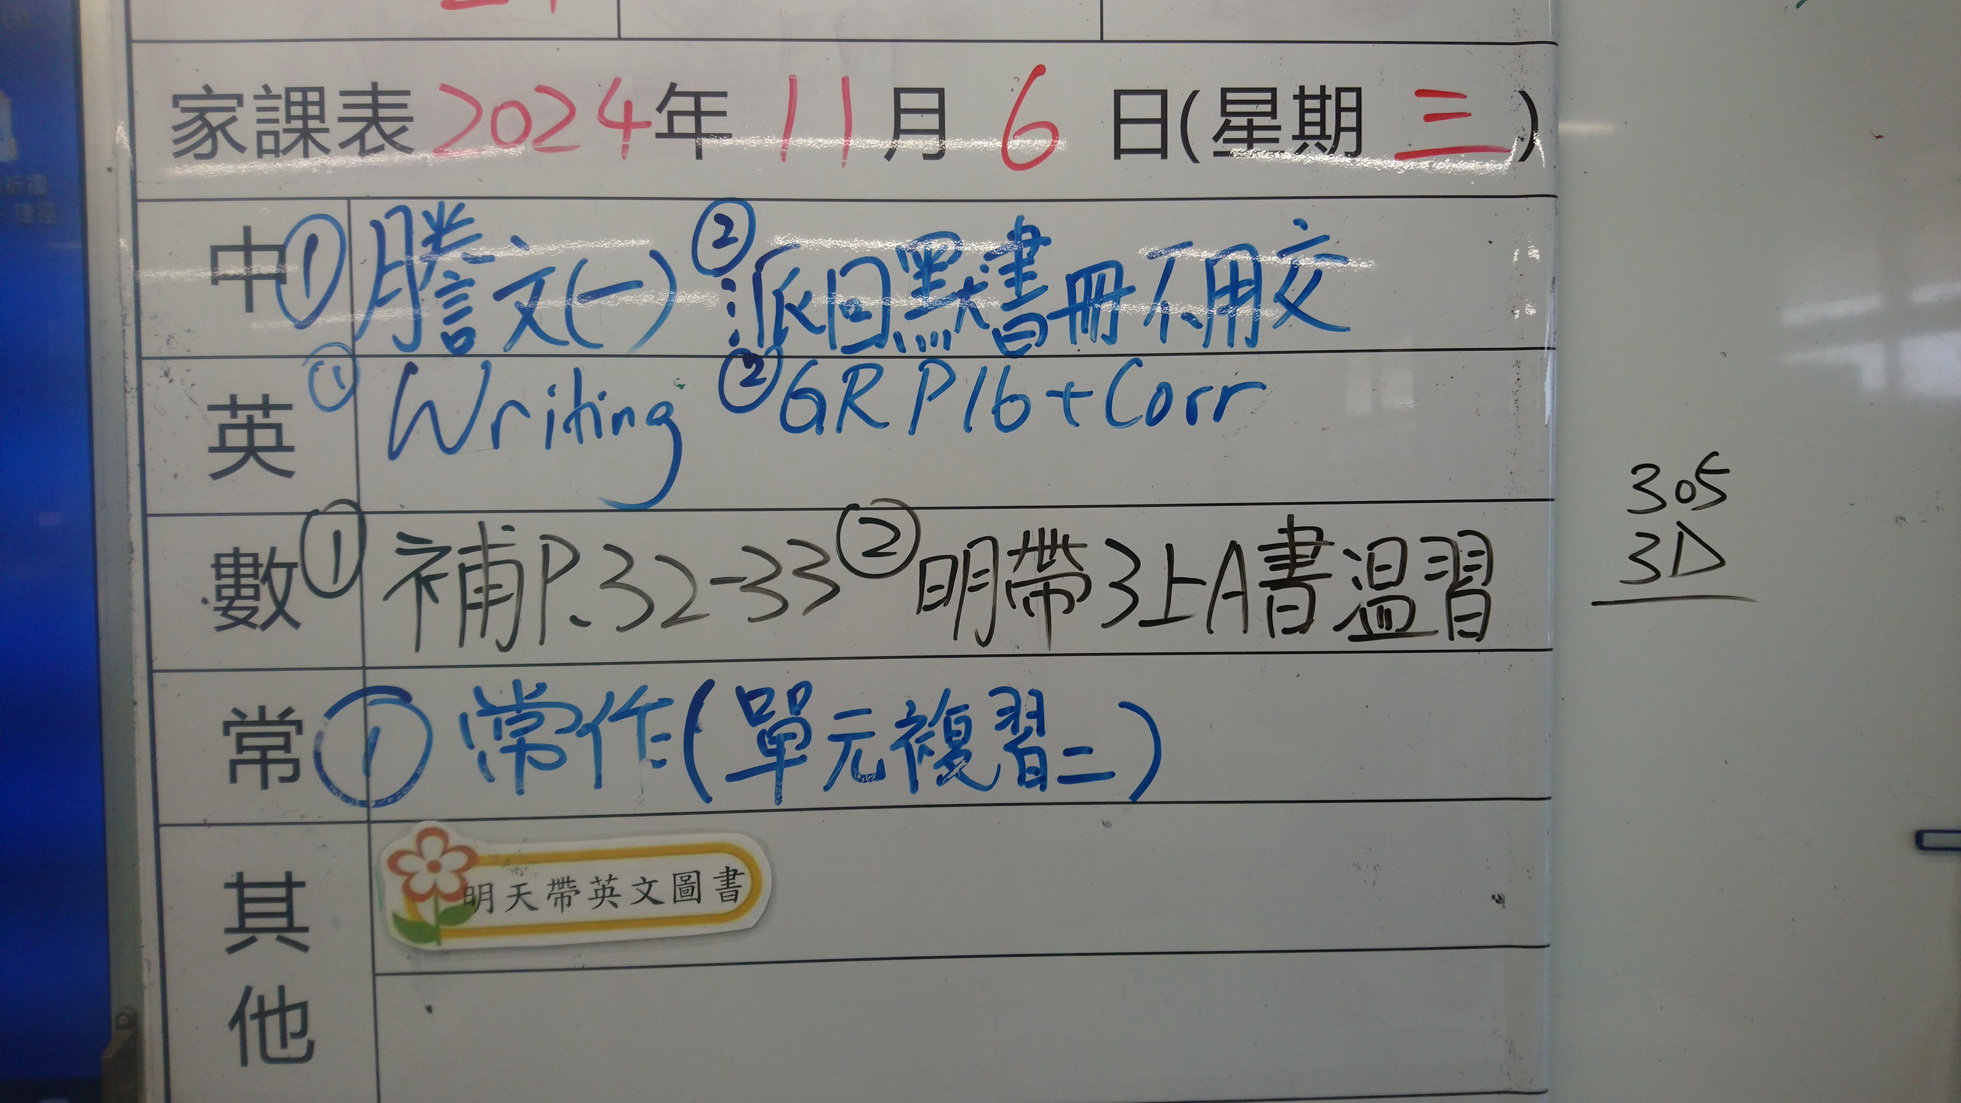 家課表 2024年 11月 6日(星期三)
中 ① 謄文(一) ② 派回默書冊不用交
英 ① Writing ② GR P16+Corr
數 ① 補P.32-33 ② 明帶3上A書溫習
305
3D
常 ① 常作(單元複習二)
其他
明天帶英文圖書